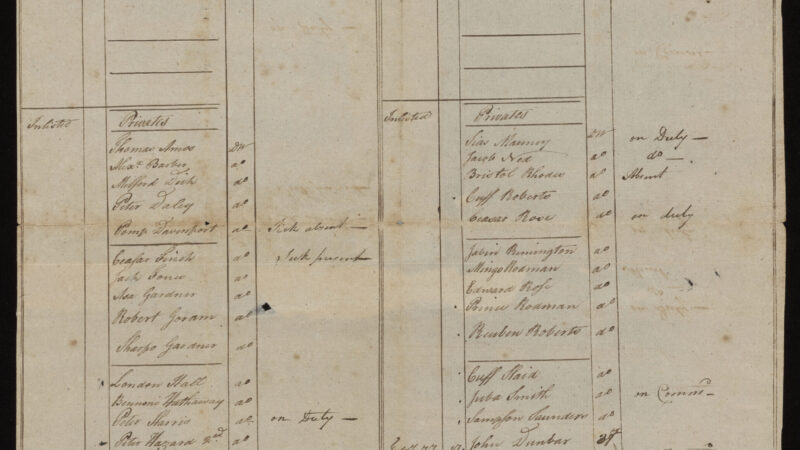 Inlisted Privates
Thomas Amos DW
Alexr. Barber do
Milford Dick do
Peter Daley do
Pomp Davenport do Sick absent —
Ceasar Finch do Sick present
Jack Fones do
Asa Gardner do
Robert Goram do
Sharpo Gardner do
London Hall do
Bennoni Hathaway do
Peter Harris do on Duty —
Peter Hazard 2nd do
Inlisted Privates
Sias DW on Duty —
Jacob Ned do do —
Bristol Rhodes do Absent
Cuff Roberts do
Ceasar Rose do on duty
Jabin Remington do
Mingo Rodman do
Edward Rose do
Prince Rodman do
Reuben Roberts do
Cuff Slaid do
Juba Smith do on Comm
Sampson Saunders do
John Dunbar